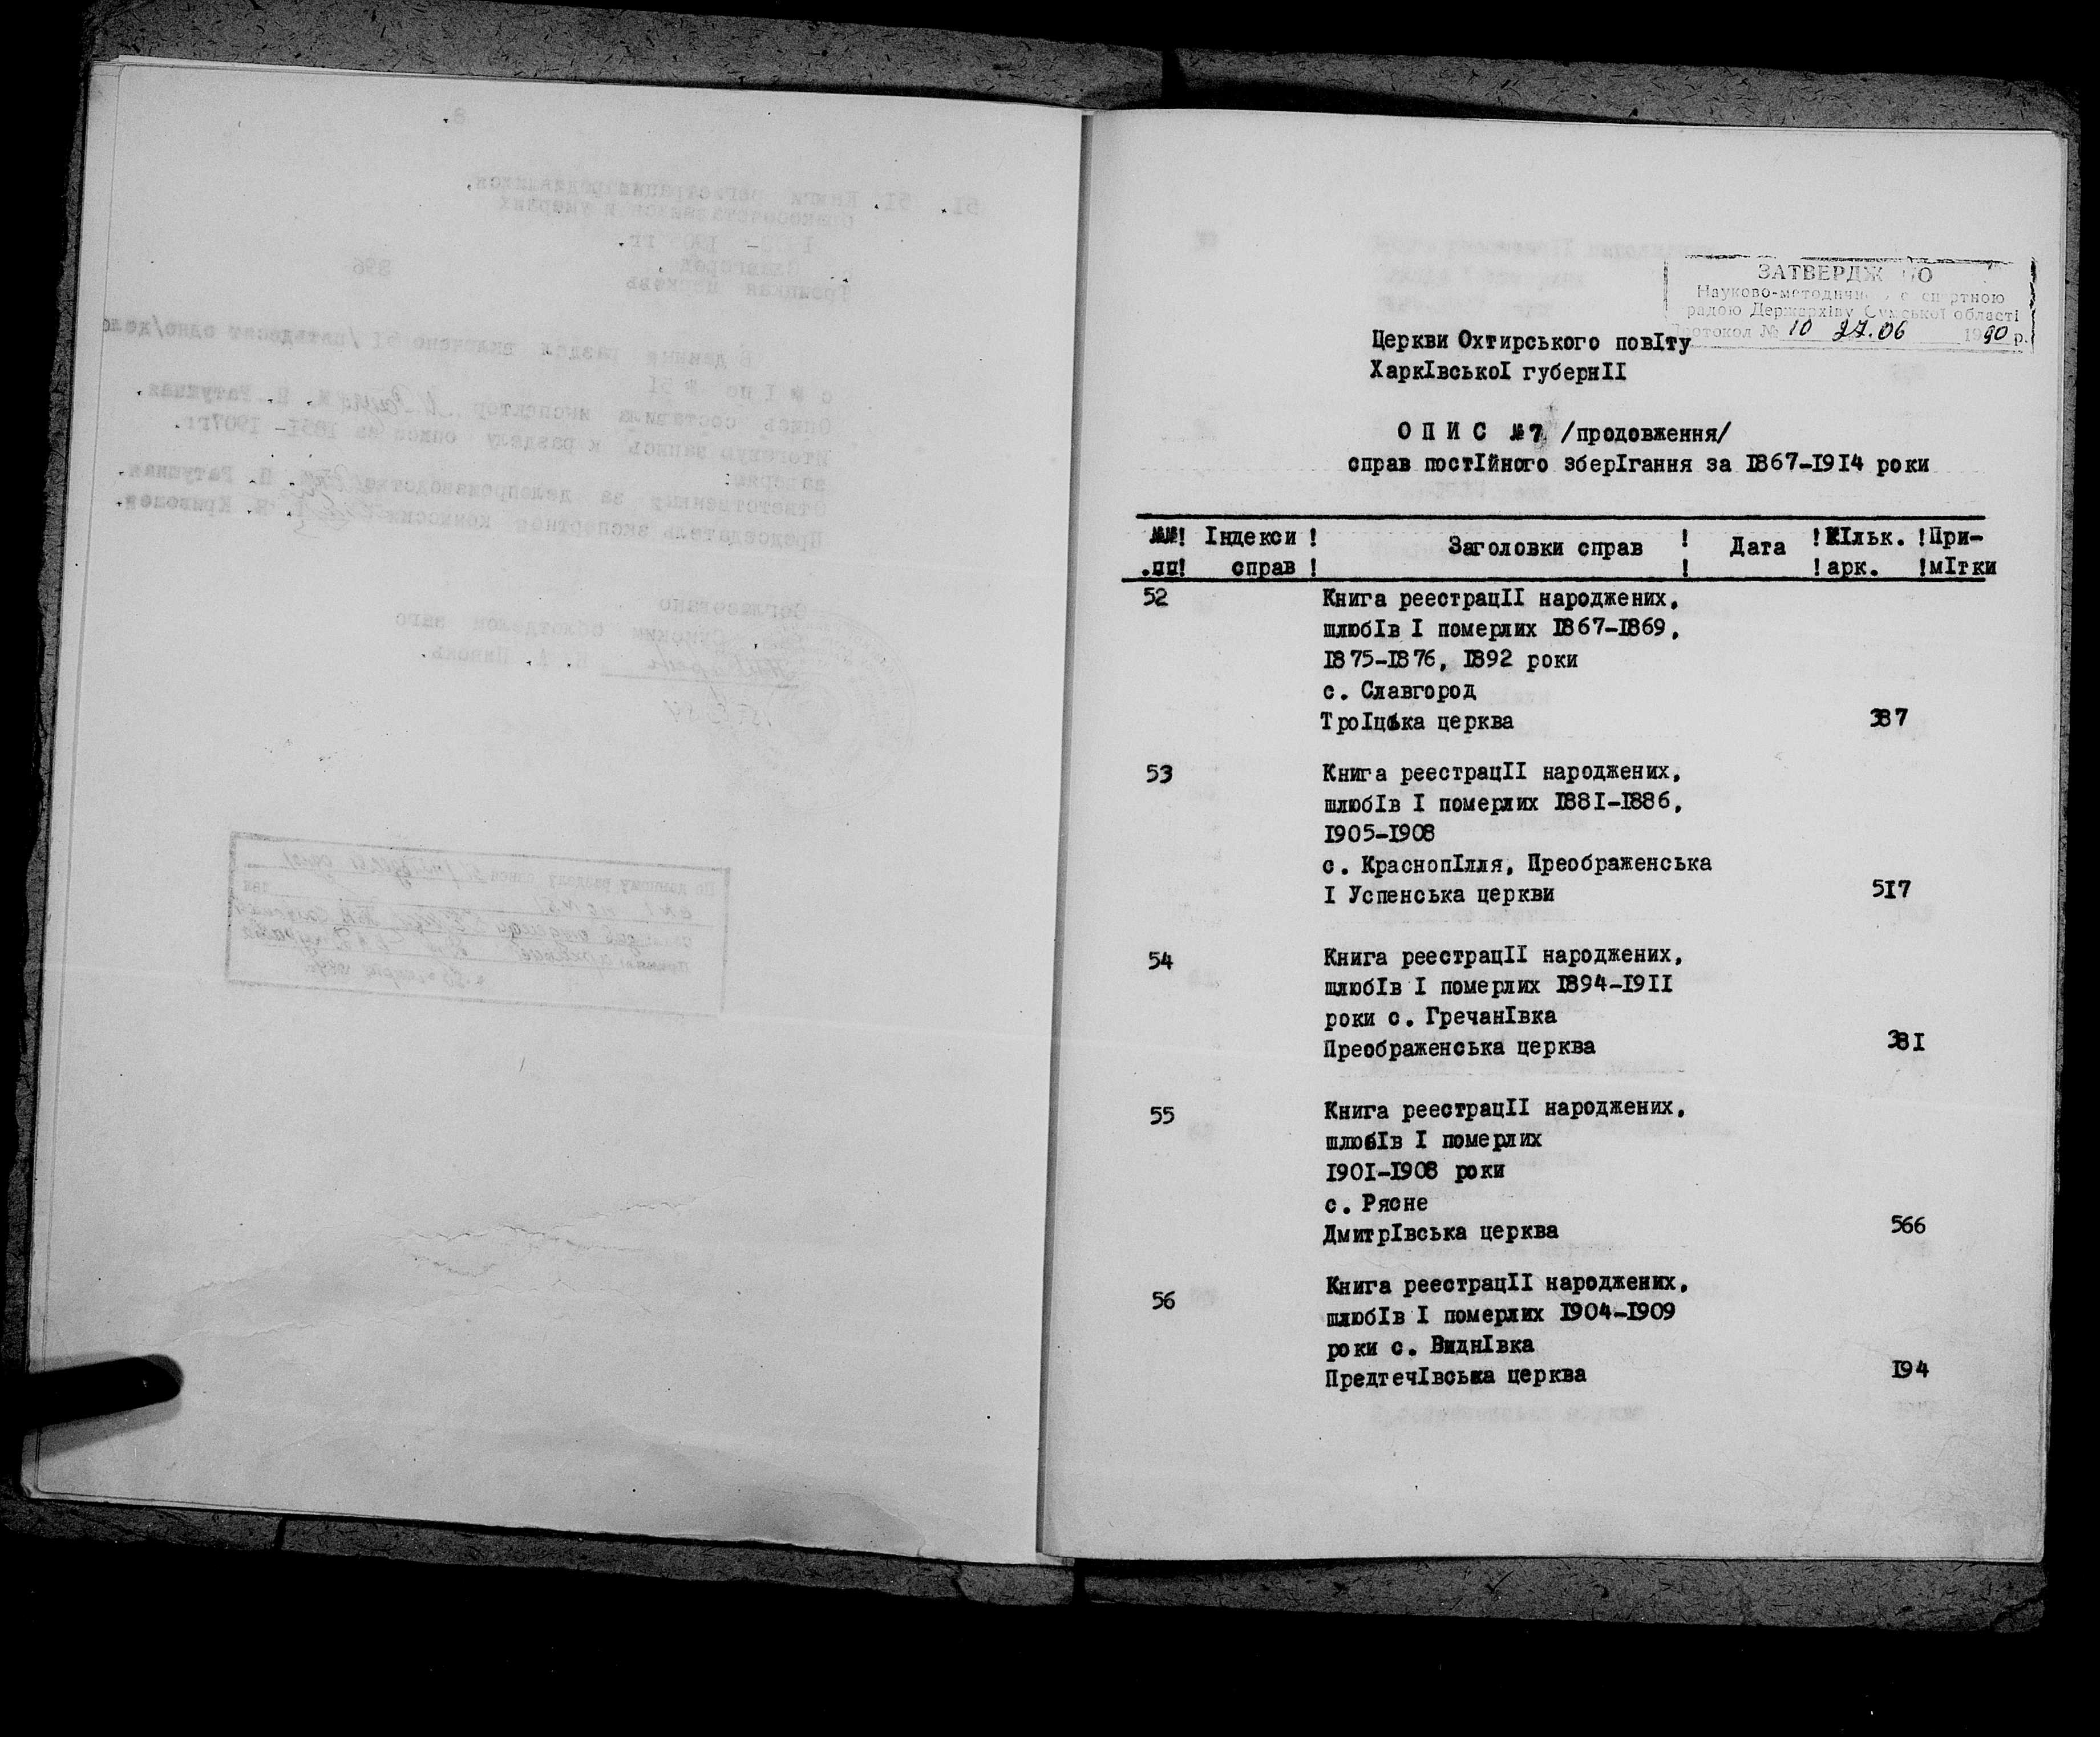 ЗАТВЕРДЖ НО
Науково-методичн експертною
радою Держархіву Сумської області
Протокол № 10 27.06 1990 р.
Церкви Охтирського повIту
ХаркIвськоI губернII
О П И С №7 /продовження/
справ постIйного зберIгання за I867-I9I4 роки
№№! Iндекси ! Заголовки справ ! Дата !КIльк. !При-
.пп! справ ! ! !арк. !мIтки
52 Книга реестрацII народжених,
шлюбIв I померлих I867-I869,
I875-I876, I892 роки
с. Славгород
ТроIцька церква 387
53 Книга реестрацII народжених,
шлюбIв I померлих I88I-I886,
I905-I908
с. КраснопIлля, Преображенська
I Успенська церкви 5I7
54 Книга реестрацII народжених,
шлюбIв I померлих I894-I9II
роки с. ГречанIвка
Преображенська церква 38I
55 Книга реестрацII народжених,
шлюбIв I померлих
I90I-I908 роки
с. Рясне
ДмитрIвська церква 566
56 Книга реестрацII народжених,
шлюбIв I померлих I904-I909
роки с. ВиднIвка
ПредтечIвська церква I94